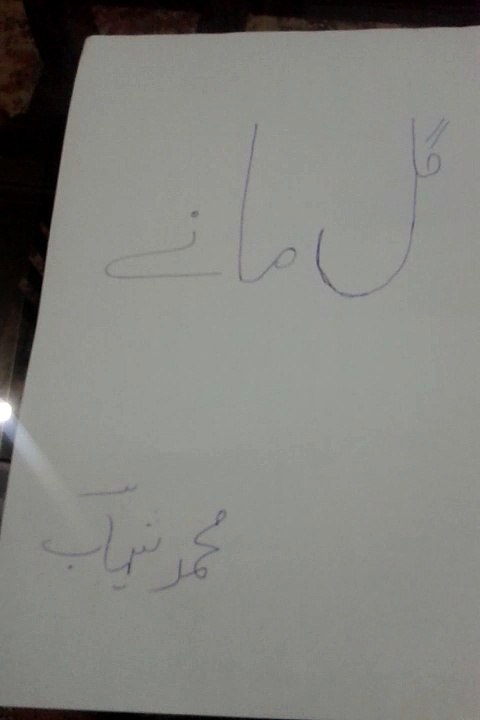 گل مانے
محمد شہاب